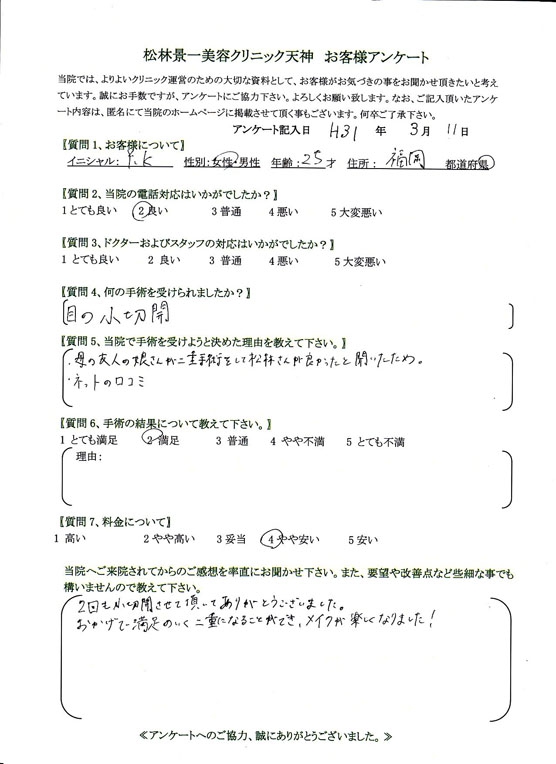 松林景一美容クリニック天神 お客様アンケート
当院では、よりよいクリニック運営のための大切な資料として、お客様がお気づきの事をお聞かせ頂きたいと考え
ています。誠にお手数ですが、アンケートにご協力下さい。よろしくお願い致します。なお、ご記入頂いたアンケ
ート内容は、匿名にて当院のホームページに掲載させて頂く事もございます。何卒ご了承下さい。
アンケート記入日 H31 年 3月 11日
〖質問1、お客様について〗
イニシャル: Y.K 性別:女性・男性 年齢:25才 住所: 福岡 都道府県
〖質問2、当院の電話対応はいかがでしたか?〗
1とても良い 2良い 3普通 4悪い 5大変悪い
〖質問3、ドクターおよびスタッフの対応はいかがでしたか?〗
1とても良い 2良い 3普通 4悪い 5大変悪い
〖質問4、何の手術を受けられましたか?〗
目の小切開
〖質問5、当院で手術を受けようと決めた理由を教えて下さい。〗
・母の友人の娘さんが二重手術をして松林さんが良かったと聞いたため。
・ネットの口コミ
〖質問6、手術の結果について教えて下さい。〗
1とても満足 2満足 3普通 4やや不満 5とても不満
理由:
〖質問7、料金について〗
1高い 2やや高い 3妥当 4やや安い 5安い
当院へご来院されてからのご感想を率直にお聞かせ下さい。また、要望や改善点など些細な事でも
構いませんので教えて下さい。
2回も小切開させて頂いてありがとうございました。
おかげで満足のいく二重になることができ、メイクが楽しくなりました!
≪アンケートへのご協力、誠にありがとうございました。≫